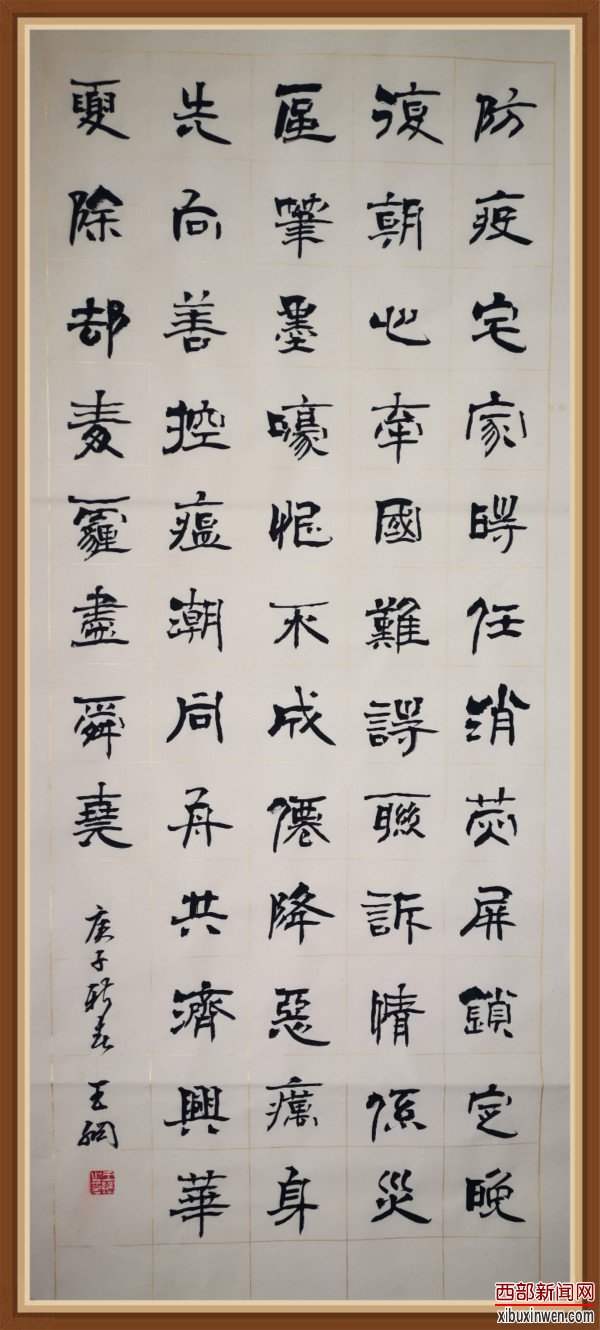 防疫宅家時任消熒屏鎖定晚
復朝心牽國難詩聯訴情係災
區筆墨嚎恨不成僊降惡癘身
先向善控瘟潮同舟共濟興華
夏除却霾盡舜堯
庚子春 王
西部新闻网
xibuxinwen.com